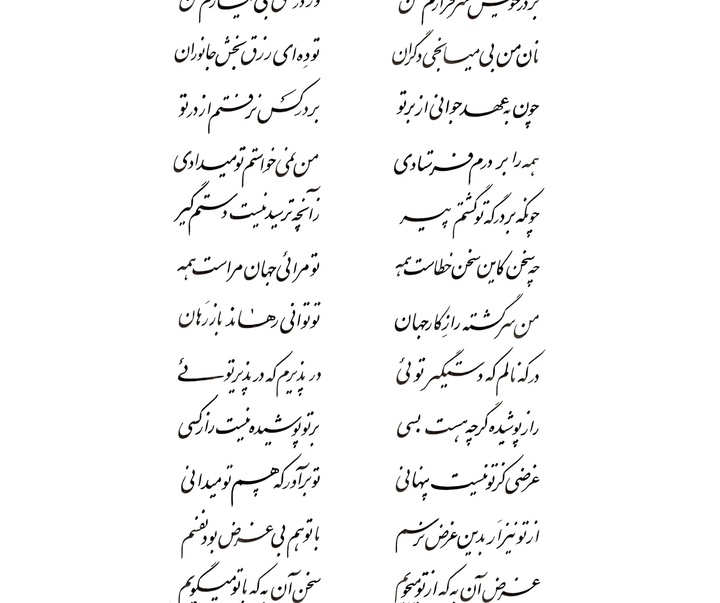 بر در خویش سرفرازم کن وز در خلق بی نیازم کن
نان من بی میانجی دگران تو ده ای رزق بخش جانوران
چون به عهد جوانی از بر تو بر در کس نرفتم از در تو
همه را بر درم فرستادی من نمی خواستم تو میدادی
چونکه بر درگه تو گشتم پیر زآنچه ترسیدنیست دستم گیر
چه سخن کاین سخن خطاست همه تو مرائی جهان مراست همه
من سرگشته را ز کار جهان تو توانی رهاند باز رَهان
در که نالم که دستگیر توئی در پذیرم که در پذیر توئی
راز پوشیده گرچه هست بسی بر تو پوشیده نیست راز کسی
غرضی کز تو نیست پنهانی تو برآور که هم تو میدانی
از تو نیز اَر بدین غرض نرسم با تو هم بی غرض بود نفسم
غرض آن به که از تو میجویم سخن آن به که با تو میگویم